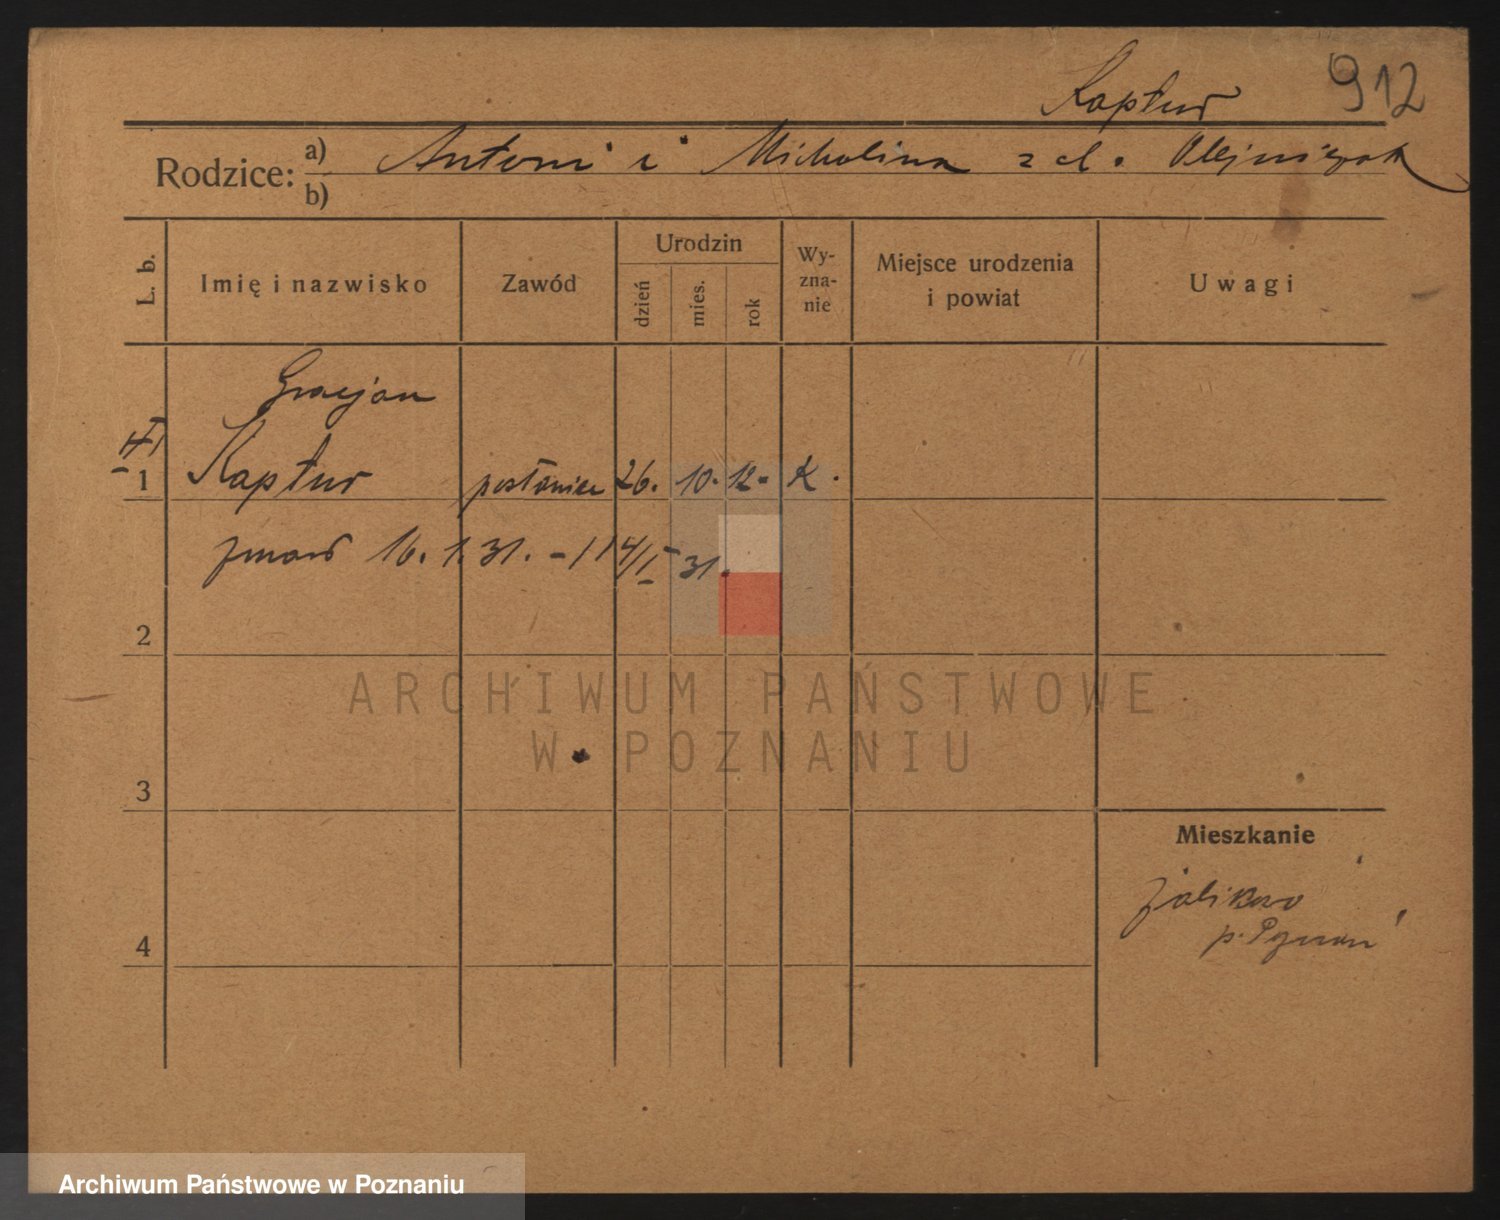 Kaptur 912
Rodzice: a) Antoni i Michalina z d. Olejniczak
b)
L. b.
Imię i nazwisko
Zawód
Urodzin
dzień
mies.
rok
Wy-
zna-
nie
Miejsce urodzenia
i powiat
Uwagi
Gracjan
1 Kaptur posłaniec 26. 10. 12. K.
zmarł 16. 1. 31. - 114/I 31.
2
ARCHIWUM PAŃSTWOWE
W POZNANIU
3
Mieszkanie
Żabikowo
p. Poznań
4
Archiwum Państwowe w Poznaniu